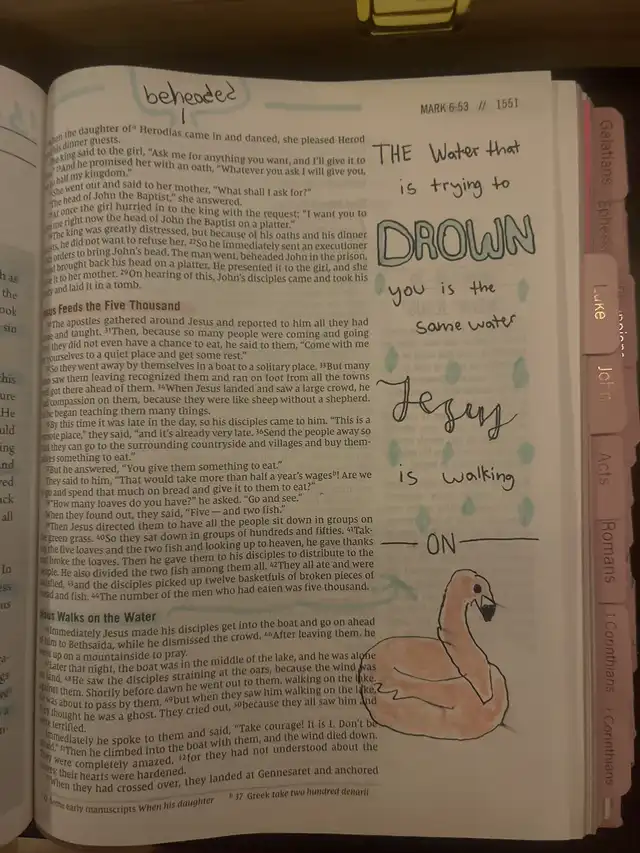 beheaded
MARK 6:53 // 1551
when the daughter of Herodias came in and danced, she pleased Herod
his dinner guests.
king said to the girl, "Ask me for anything you want, and I'll give it to
And he promised her with an oath, "Whatever you ask I will give you,
half my kingdom."
She went out and said to her mother, "What shall I ask for?"
"The head of John the Baptist," she answered.
At once the girl hurried in to the king with the request: "I want you to
me right now the head of John the Baptist on a platter."
The king was greatly distressed, but because of his oaths and his dinner
he did not want to refuse her. 27So he immediately sent an executioner
orders to bring John's head. The man went, beheaded John in the prison,
brought back his head on a platter. He presented it to the girl, and she
it to her mother. 29On hearing of this, John's disciples came and took his
and laid it in a tomb.
Feeds the Five Thousand
The apostles gathered around Jesus and reported to him all they had
and taught. 31Then, because so many people were coming and going
they did not even have a chance to eat, he said to them, "Come with me
yourselves to a quiet place and get some rest."
So they went away by themselves in a boat to a solitary place. 33But many
saw them leaving recognized them and ran on foot from all the towns
got there ahead of them. 34When Jesus landed and saw a large crowd, he
compassion on them, because they were like sheep without a shepherd.
he began teaching them many things.
By this time it was late in the day, so his disciples came to him. "This is a
remote place," they said, "and it's already very late. 36Send the people away so
they can go to the surrounding countryside and villages and buy them-
selves something to eat."
But he answered, "You give them something to eat."
They said to him, "That would take more than half a year's wages! Are we
go and spend that much on bread and give it to them to eat?"
"How many loaves do you have?" he asked. "Go and see."
When they found out, they said, "Five — and two fish."
Then Jesus directed them to have all the people sit down in groups on
green grass. 40So they sat down in groups of hundreds and fifties. 41Tak-
ing the five loaves and the two fish and looking up to heaven, he gave thanks
broke the loaves. Then he gave them to his disciples to distribute to the
people. He also divided the two fish among them all. 42They all ate and were
satisfied, 43and the disciples picked up twelve basketfuls of broken pieces of
bread and fish. 44The number of the men who had eaten was five thousand.
Jesus Walks on the Water
Immediately Jesus made his disciples get into the boat and go on ahead
of him to Bethsaida, while he dismissed the crowd. 46After leaving them, he
went up on a mountainside to pray.
Later that night, the boat was in the middle of the lake, and he was alone
on land. 48He saw the disciples straining at the oars, because the wind was
against them. Shortly before dawn he went out to them, walking on the lake.
He was about to pass by them, 49but when they saw him walking on the lake,
they thought he was a ghost. They cried out, 50because they all saw him and
were terrified.
Immediately he spoke to them and said, "Take courage! It is I. Don't be
51Then he climbed into the boat with them, and the wind died down.
They were completely amazed, 52for they had not understood about the
their hearts were hardened.
When they had crossed over, they landed at Gennesaret and anchored
early manuscripts When his daughter b 37 Greek take two hundred denarii
THE Water that
is trying to
DROWN
you is the
same water
Jesus
is walking
ON
Galatians
Luke
John
Acts
Romans
1 Corinthians
Corinthians